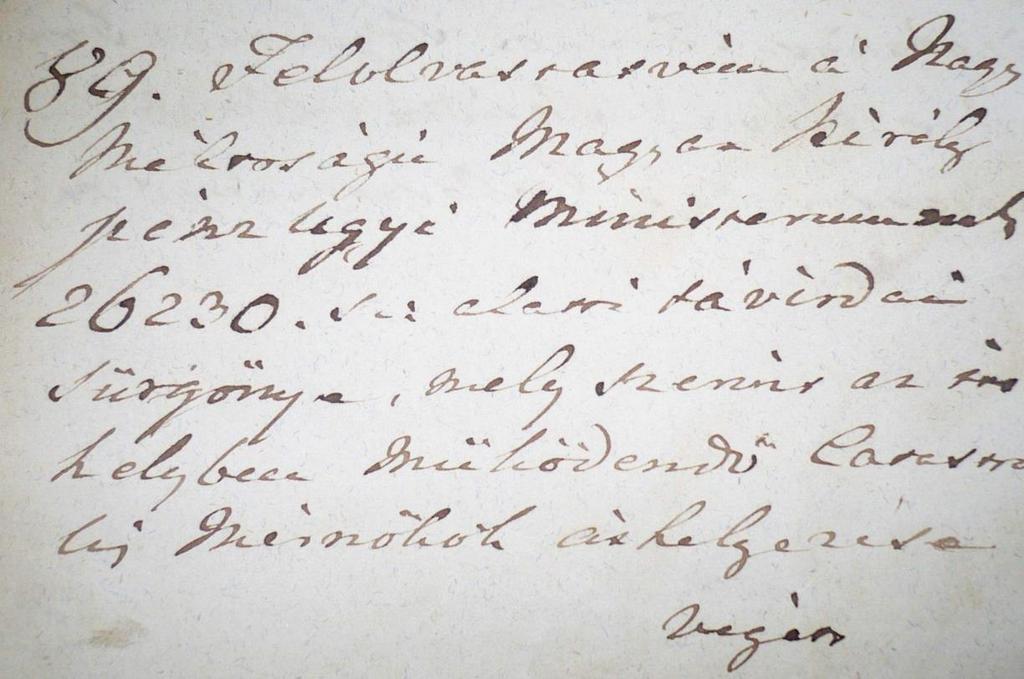 89. Felolvastatván a Nagy
Méltóságú Magyar Király
pénzügyi Ministeriumnak
26230. sz: alatti távirdai
sürgönye, mely szerint az itt
helyben működendő
Mérnökök áthelyezése
végett